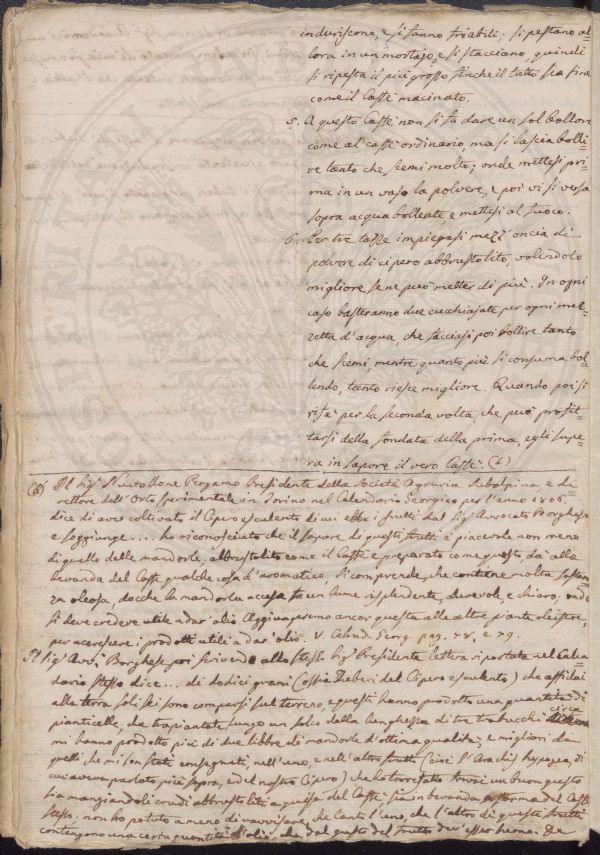 induriscono, e si fanno friabili; si pestano al=
lora in un mortajo, e si stacciano, quindi
si ripesta il più grosso finche il tutto sia fine
come il Caffè macinato.
5. A questo Caffè non si fa dare un sol bollore
come al caffè ordinario, ma si lascia bolli=
re tanto che scemi molto; onde mettesi pri=
ma in un vaso la polvere, e poi vi si versa
sopra acqua bollente, e mettesi al fuoco.
6. Per tre tazze impiegasi mezz'oncia di
polvere di cipero abbrustolito, volendolo
migliore se ne può metter di più. In ogni
caso basteranno due cucchiajate per ogni mez=
zetta d'acqua, che facciasi poi bollire tanto
che scemi, mentre quanto più si consuma bol=
lendo, tanto riesce migliore. Quando poi si
rifà per la seconda volta, che può profit=
tarsi della fondata della prima, egli supe=
ra in sapore il vero Caffè. (b)
Il Sig. Nuvolone Pergamo Presidente della Società Agraria Subalpina e di
rettore dell'Orto sperimentale in Torino nel Calendario Georgico per l'anno 1806
dice di aver coltivato il Cipero esculento di cui ebbe i frutti dal Sig. Avvocato Borghese
e soggiunge .... ho riconosciuto che il sapore di questi frutti è piacevole non meno
di quello delle mandorle, abbrustolito come il Caffè e preparato come questo, dà alla
bevanda del Caffè qualche cosa d'aromatico, si comprende, che contiene molta sostan
za oleosa, dacche la mandorla accesa fa un lume risplendente, durevole, e chiaro, onde
si deve credere utile a dar olio. Aggiungeremo ancor questa alle altre piante oleifere,
per accrescere i prodotti utili a dar olio. V. Calend. Georg. pag. 78, e 79.
Il Sig. Avv. Borghese poi scrivendo allo stesso Sig. Presidente lettera riportata nel Calen
dario stesso dice... di dodici grani (ossia Tuberi del Cipero esculento) che affidai
alla terra soli sei sono comparsi sul terreno, e questi hanno prodotto una quantità di
pianticelle, che trapiantate lungo un solco della lunghezza di tre trabucchi circa
mi hanno prodotto più di due libbre di mandorle d'ottima qualità; e migliori di
quelli che mi son stati consegnati, nell'uno, e nell'altro frutto (cioè l'Arachis hypogea, di
cui aveva parlato più sopra, ed il nostro Cipero) che ho torrefatto trovai un buon gusto
sia mangiandoli crudi abbrustoliti a guisa del Caffè sia in bevanda a forma del Caffè
stesso. non ho potuto a meno di ravvisare, che tanto l'uno, che l'altro di questi frutti
contengono una certa quantità d'olio, che dal gusto del frutto